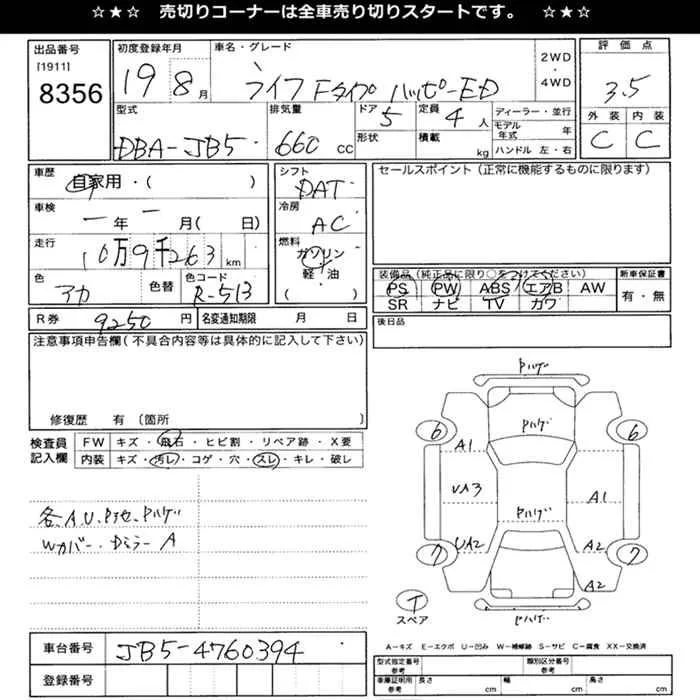 ☆★☆ 売切りコーナーは全車売り切りスタートです。 ☆★☆
出品番号
[1911]
8356
初度登録年月
19 8月
車名・グレード
ライフ Fタイプ ハッピーED
2WD
・
4WD
評価点
3.5
外装 内装
C C
型式
DBA-JB5
排気量
660 CC
ドア 5
形状
定員 4 人
積載 kg
ディーラー・並行
モデル年式 年
ハンドル 左・右
車歴
自家用・( )
車検
一年一月( 日)
走行
10万9千263 km
色
アカ
色替
色コード
R-513
シフト
DAT
冷房
AC
燃料
ガソリン
・
軽・油
( )
セールスポイント(正常に機能するものに限ります)
装備品(純正品に限り○をつけてください)
PS PW ABS エアB AW
SR ナビ TV カワ
新車保証書
有・無
R券 9250 円
名変通知期限 月 日
後日品
注意事項申告欄(不具合内容等は具体的に記入して下さい)
修復歴 有(箇所 )
検査員記入欄
FW キズ・飛石・ヒビ割・リペア跡・X要
内装 キズ・汚レ・コゲ・穴・スレ・キレ・破レ
各A.U.Pヤケ.Pハゲ
Wカバー.Dミラー A
Pハゲ
Pハゲ
6 6
A1
UA3
A1
Pハゲ
UA2
A2
7 7
A2
Pハゲ
T
スペア
A-キズ E-エクボ U-凹み W-補修跡 S-サビ C-腐食 XX-交換済
車台番号 JB5-4760394
登録番号
型式指定番号 参考
類別区分番号 参考
車庫証明用 参考
長さ cm 幅 cm 高さ cm